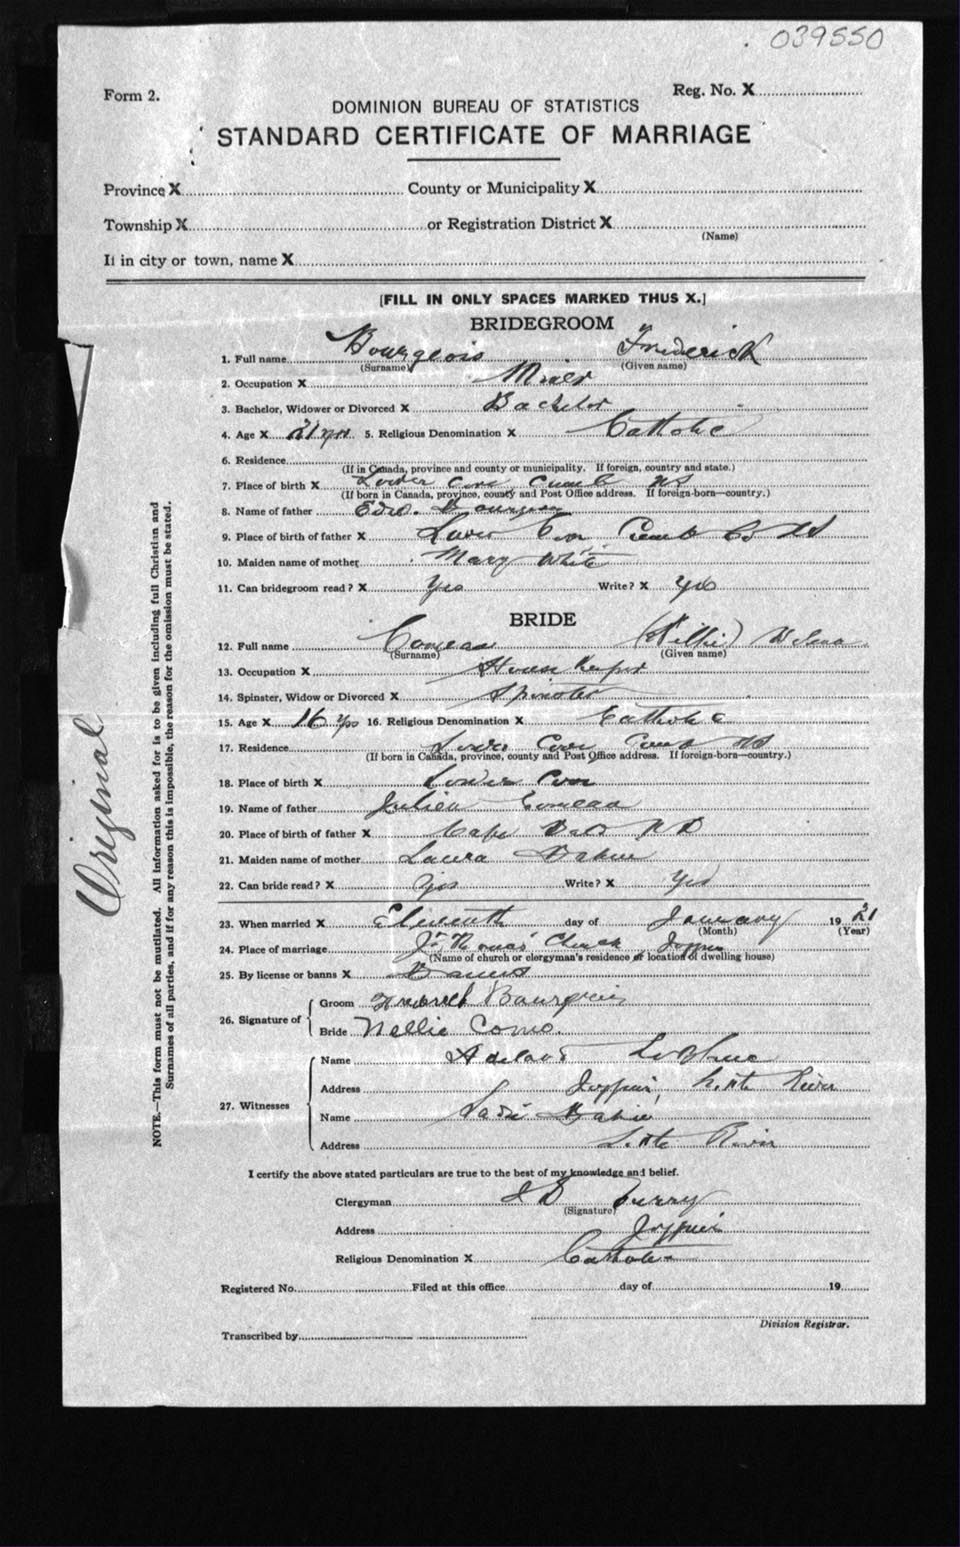 039550
Form 2.
Reg. No. X
DOMINION BUREAU OF STATISTICS
STANDARD CERTIFICATE OF MARRIAGE
Province X County or Municipality X
Township X or Registration District X
(Name)
If in city or town, name X
[FILL IN ONLY SPACES MARKED THUS X.]
BRIDEGROOM
1. Full name Bourgeois Frederick
(Surname) (Given name)
2. Occupation X Miner
3. Bachelor, Widower or Divorced X Bachelor
4. Age X 21 yrs 5. Religious Denomination X Catholic
6. Residence
(If in Canada, province and county or municipality. If foreign, country and state.)
7. Place of birth X Lower Cove Cumb NS
(If born in Canada, province, county and Post Office address. If foreign-born—country.)
8. Name of father Edw. Bourgeois
9. Place of birth of father X Lower Cove Cumb Co NS
10. Maiden name of mother Mary White
11. Can bridegroom read? X Yes Write? X Yes
BRIDE
12. Full name Comeau (Nellie)
(Surname) (Given name)
13. Occupation X House Keeper
14. Spinster, Widow or Divorced X Spinster
15. Age X 16 yrs 16. Religious Denomination X Catholic
17. Residence Lower Cove Cumb NS
(If born in Canada, province, county and Post Office address. If foreign-born—country.)
18. Place of birth X Lower Cove
19. Name of father Julien Comeau
20. Place of birth of father X Cape
21. Maiden name of mother Laura
22. Can bride read? X Yes Write? X Yes
23. When married X Eleventh day of January 1921
(Month) (Year)
24. Place of marriage St Thomas' Church Joggins
(Name of church or clergyman's residence or location of dwelling house)
25. By license or banns X Banns
26. Signature of
Groom Frederick Bourgeois
Bride Nellie Como.
27. Witnesses
Name LeBlanc
Address Joggins, Little River
Name
Address Little River
I certify the above stated particulars are true to the best of my knowledge and belief.
Clergyman
(Signature)
Address Joggins
Religious Denomination X Catholic
Registered No. Filed at this office day of 19
Division Registrar.
Transcribed by
NOTE.—This form must not be mutilated. All information asked for is to be given including full Christian and
Surnames of all parties, and if for any reason this is impossible, the reason for the omission must be stated.
Original